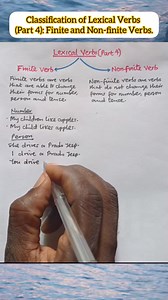 Classification of Lexical Verbs
(Part 4): Finite and Non-finite Verbs.
Lexical Verbs (Part 4)
Finite verb
Non-finite Verb
Finite verbs are verbs
that are able to change
their forms for number,
person and tense.
Non-finite verbs are verbs
that do not change their
forms for number, person
and tense.
Number
- My children like apples.
- My child likes apples.
Person
She drives a Prado Jeep.
I drive a Prado Jeep.
You drive